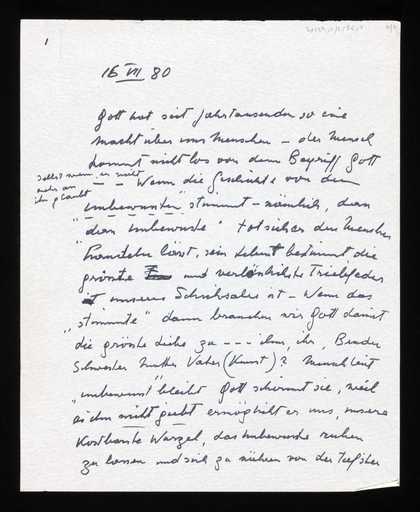 1
16 VII 80
Gott hat seit Jahrtausenden so eine
Macht über uns Menschen – der Mensch
kommt nicht los von dem Begriff Gott
selbst wenn er nicht
mehr an
ihn glaubt
– – Wenn die Geschichte von dem
"Unbewussten stimmt – nämlich, dass
"das Unbewusste" tatsächlich den Menschen
handeln lässt, sein Leben bestimmt die
grösste und verlässlichste Triebfeder
ist unseres Schicksales ist – Wenn das
"stimmte" dann brauchen wir Gott damit
die grösste Liebe zu – – – ihm, ihr, Bruder
Schwester Mutter Vater (Kunst)?
"unbewusst" bleibt Gott schützt sie, weil
es ihn nicht giebt ermöglicht er uns, unsere
Kostbarste Wurzel, das Unbewusste ruhen
zu lassen und sich zu nähren von der